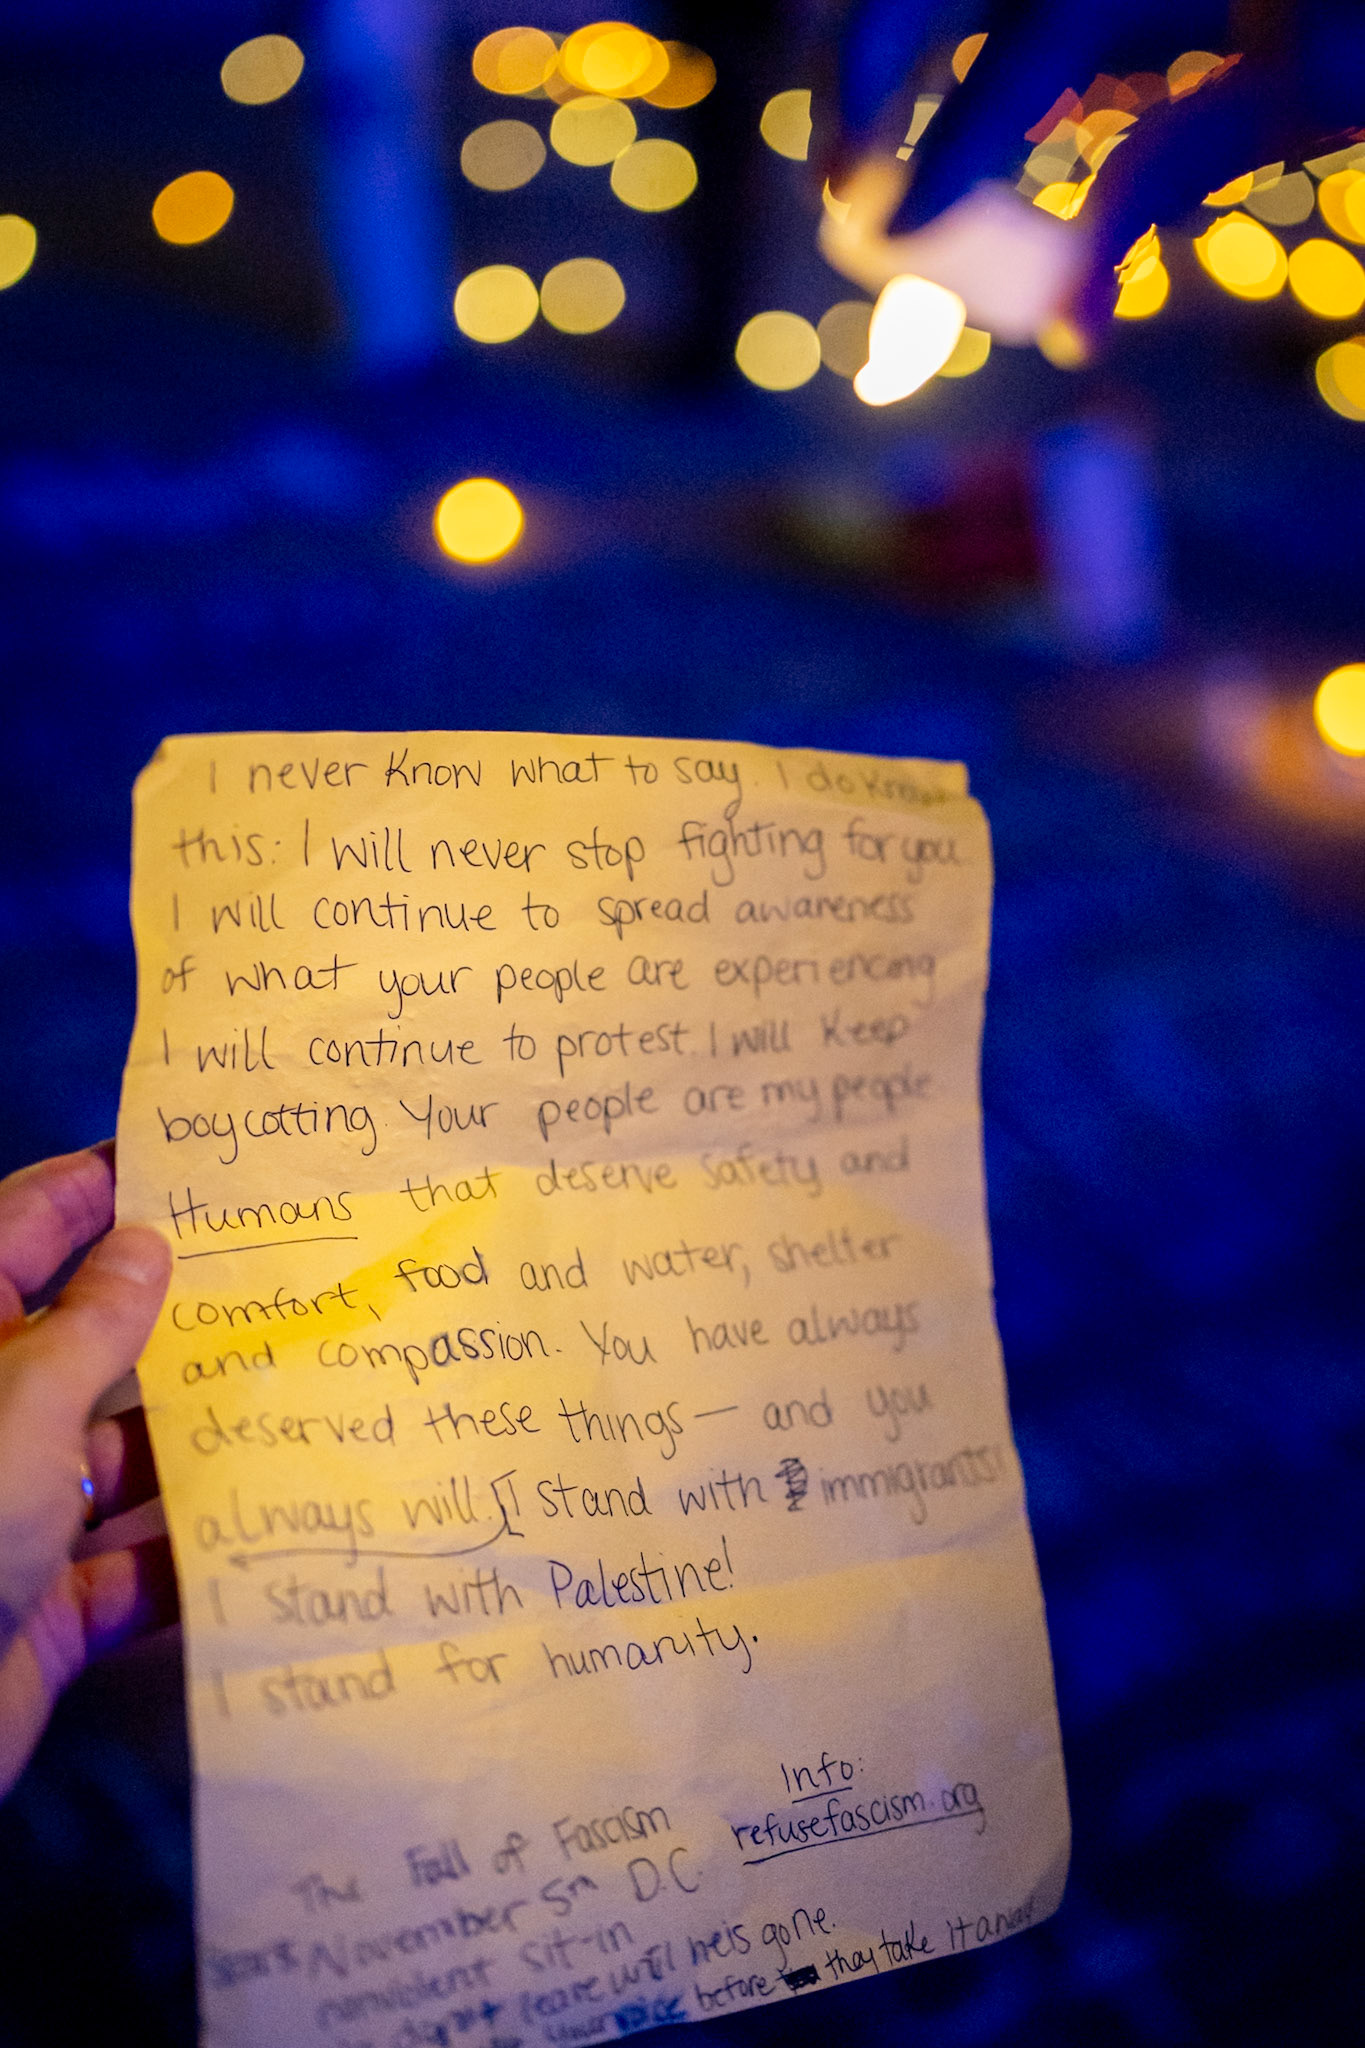 I never know what to say. I do know
this: I will never stop fighting for you.
I will continue to spread awareness
of what your people are experiencing
I will continue to protest. I will keep
boycotting. Your people are my people
Humans that deserve safety and
comfort, food and water, shelter
and compassion. You have always
deserved these things — and you
always will. I stand with immigrants!
I stand with Palestine!
I stand for humanity.
Info:
refusefascism.org
The Fall of Fascism
November 5th D.C.
nonviolent sit-in
don't leave until he is gone.
your voice before they take it away